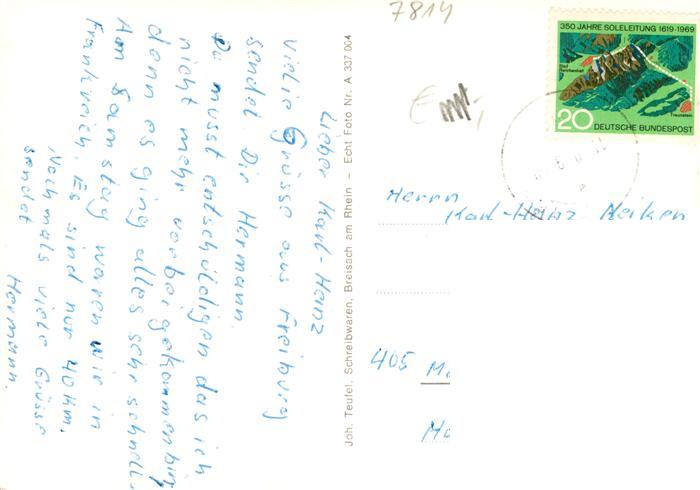 7814
350 JAHRE SOLELEITUNG 1619-1969
Bad
Reichenhall
Traunstein
20 DEUTSCHE BUNDESPOST
Lieber Karl-Hainz
Viele Grüsse aus Freiburg
sendet Dir Hermann
Du musst entschüldigen das ich
nicht mehr vorbei gekommen bin
denn es ging alles sehr schnell.
Am Samstag waren wir in
Frankreich. Es sind nur 40 km.
Nochmals viele Grüsse
sendet
Hermann.
Joh. Teufel, Schreibwaren, Breisach am Rhein – Echt Foto Nr. A 337 004
Herrn
Karl-Hainz Meiken
405 M